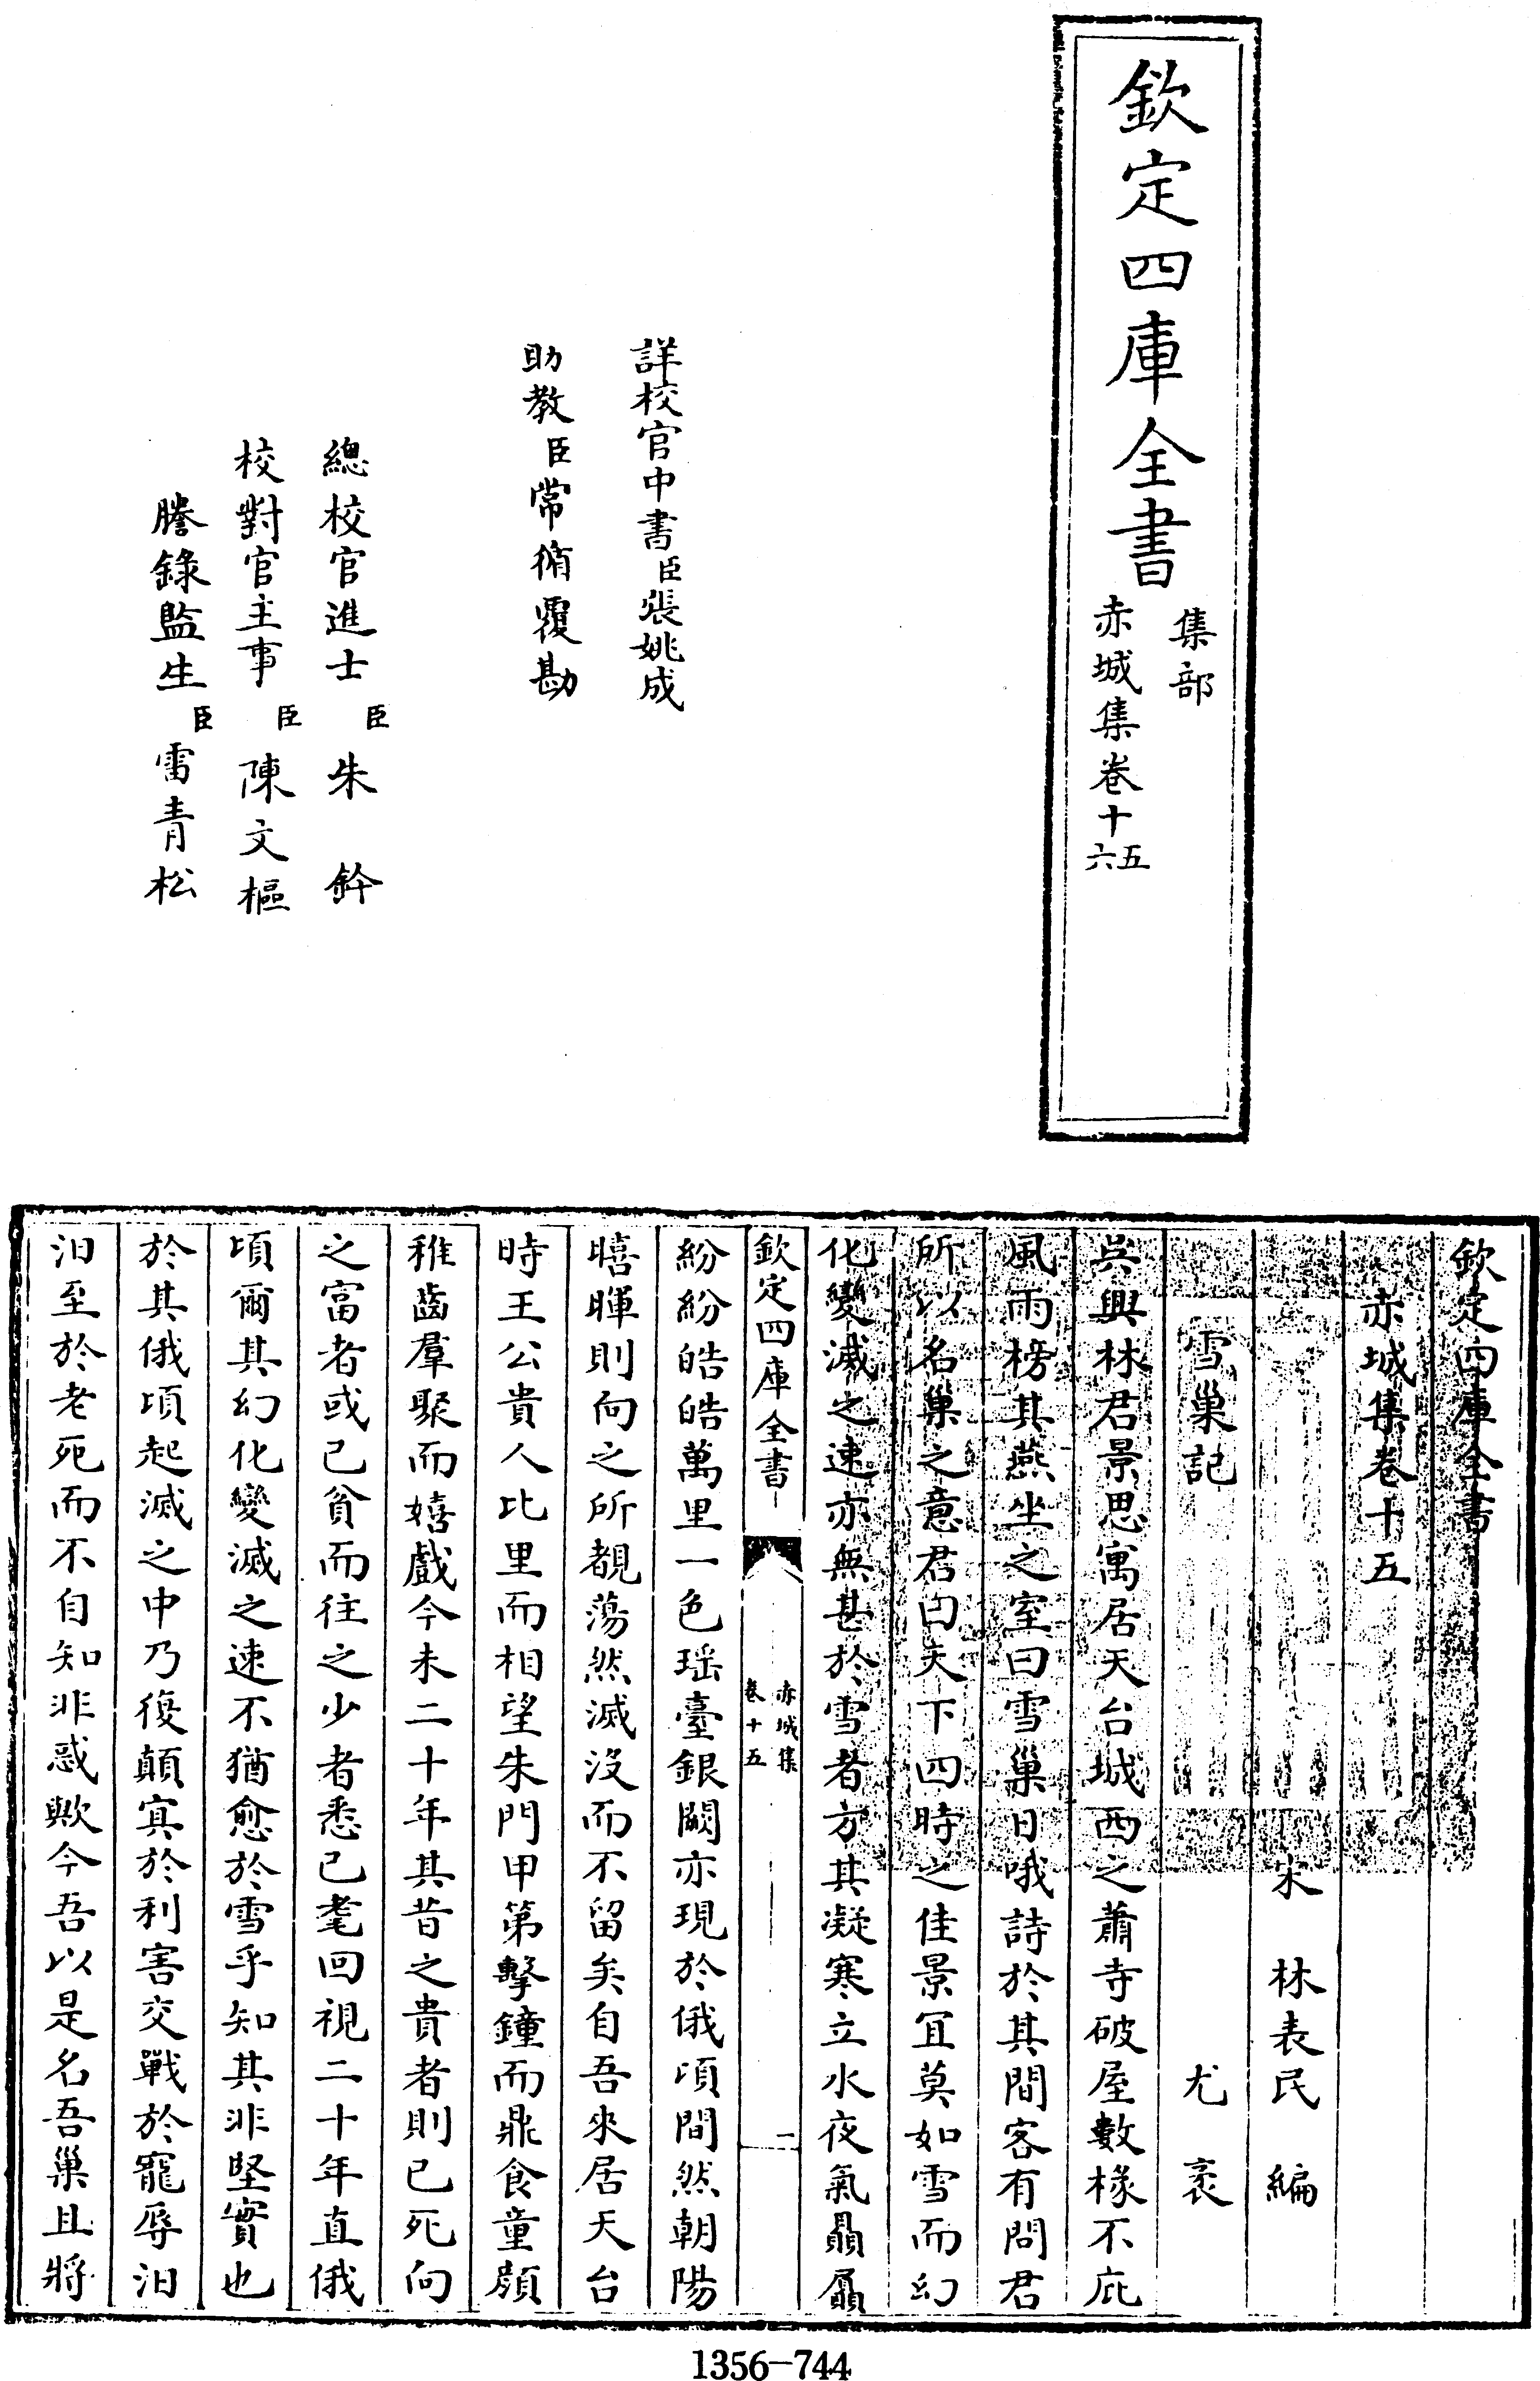 欽定四庫全書
集部
赤城集卷十五六
詳校官中書臣張姚成
助教臣常循覆勘
總校官進士臣朱鈐
校對官主事臣陳文樞
謄錄監生臣雷青松
欽定四庫全書
赤城集卷十五
宋 林表民 編
雪巢記 尤袤
吳興林君景思寓居天台城西之蕭寺破屋數椽不庇
風雨榜其燕坐之室曰雪巢日哦詩於其間客有問君
所以名巢之意君曰天下四時之佳景宜莫如雪而幻
化變滅之速亦無甚於雪者方其凝寒立水夜氣贔屭
欽定四庫全書
赤城集
卷十五
一
紛紛皓皓萬里一色瑶臺銀闕亦現於俄頃間然朝陽
曦暉則向之所覩蕩然滅沒而不留矣自吾來居天台
時王公貴人比里而相望朱門甲第擊鐘而鼎食童顔
稚齒羣聚而嬉戲今未二十年其昔之貴者則已死向
之富者或已貧而往之少者悉已耄回視二十年直俄
頃爾其幻化變滅之速不猶愈於雪乎知其非堅實也
於其俄頃起滅之中乃復顛寘於利害交戰於寵辱汨
汨至於老死而不自知非惑歟今吾以是名吾巢且將
1356-744